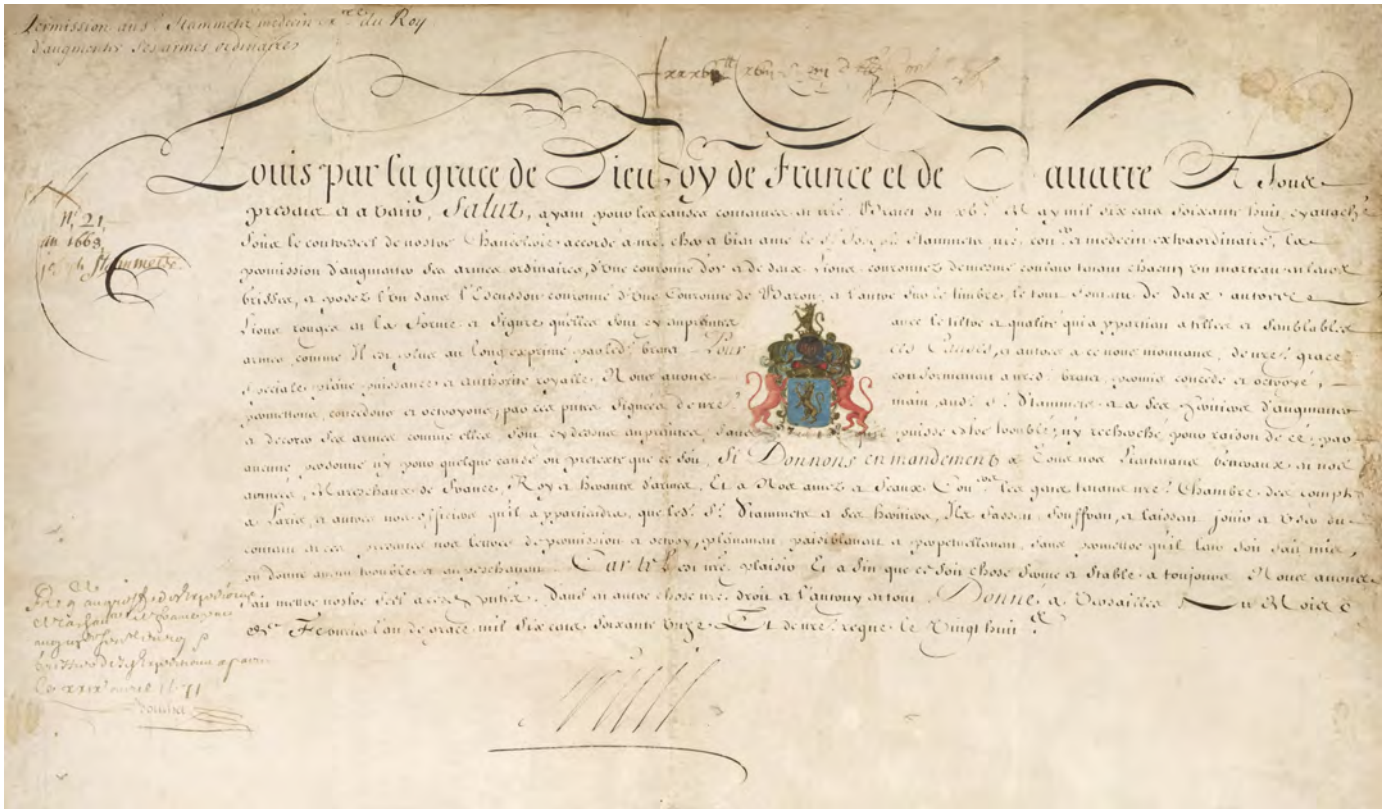 Permission au Sr. Stammetz medecin exre. du Roy
d'augmenter ses armes ordinaires
Louis par la grace de Dieu Roy de France et de Nauarre A Tous
presens et a venir, Salut, ayant pour les causes contenues en nre. Breuet du xve. May mil six cens soixante huit, cy attaché
soux le contreseel de nostre Chancelerie accordé a nre. cher et bien amé le Sr. Joseph Stammetz, nre. coner. et medecin extraordinaire, la
permission d'augmenter ses armes ordinaires, d'vne couronne d'or et de deux Lions couronnez de mesme couleur tenant chacun vn marteau
brisses, et posez l'vn dans l'Escusson couronné d'vne Couronne de Baron, et l'autre sur le timbre, le tout soutenu de deux autres
Lions rouges en la forme et figure qu'elles sont cy emprintes avec le tiltre et qualité qui appartient a telles et semblables
armes comme Il est plus au long exprimé par led. breuet Pour ces Causes, et autres a ce nous mouuans, de nre. grace
speciale, pleine puissance et authorité royalle, Nous auons conformement a nred. breuet, permis concedé et octroyé,
permettons, concedons et octroyons, par ces pntes. signées de nre. main, aud. Sr. Stammetz et a ses heritiers d'augmenter
et decorer ses armes comme elles sont cy dessus emprintes, sans puisse estre troublé, ny recherché, pour raison de ce, par
aucune personne ny pour quelque cause ou pretexte que ce soit, Si Donnons en mandement a Tous nos Lieutenans Generaux en nos
armées, Mareschaux de France, Roy et herauts d'armes, Et a Nos amez et feaux Coners. les gens tenans nre. Chambre des comptes
a Paris, et autres nos officiers qu'il appartiendra, que led. Sr. Stammetz et ses heritiers, Ils fassent, souffrent, et laissent jouir et vser du
contenu en ces presentes nos lettres de permission et octroy, plainement paisiblement et perpetuellement, sans permettre qu'il leur soit fait mis,
ou donné aucun trouble et empeschement. Car tel est nre. plaisir Et afin que ce soit chose ferme et stable a toujours Nous auons
fait mettre nostre seel a cesd. pntes. Sauf en autre chose nre. droit et l'autruy en tout, Donné, a Versailles Au Mois
de Feurier l'an de grace mil six cens soixante vnze Et de nre. regne le vingt huit
Louis
N. 21.
1668
Stammetz
1671